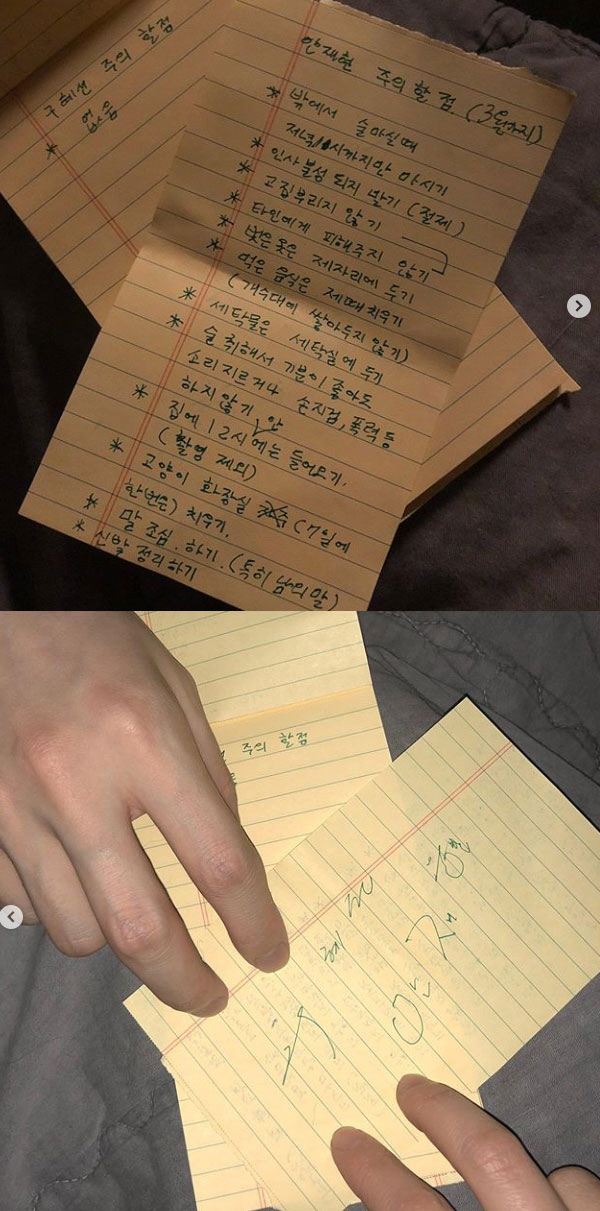 구혜선 주의 할점
* 없음
안재현 주의 할 점. (3월까지)
* 밖에서 술마실때
저녁 11시까지만 마시기
* 인사불성 되지 말기 (절제)
* 고집부리지 않기
* 타인에게 피해주지 않기
* 벗은옷은 제자리에 두기
* 먹은 음식은 제때 치우기
(개수대에 쌓아두지 않기)
* 세탁물은 세탁실에 두기
* 술 취해서 기분이 좋아도
소리지르거나 손지검, 폭력 등
하지 않기 안
* 집에 12시에는 들어오기.
(촬영 제외)
* 고양이 화장실 (7일에
한번은) 치우기.
* 말 조심. 하기. (특히 남의 말)
* 신발 정리하기
주의 할점
구혜선
안재현